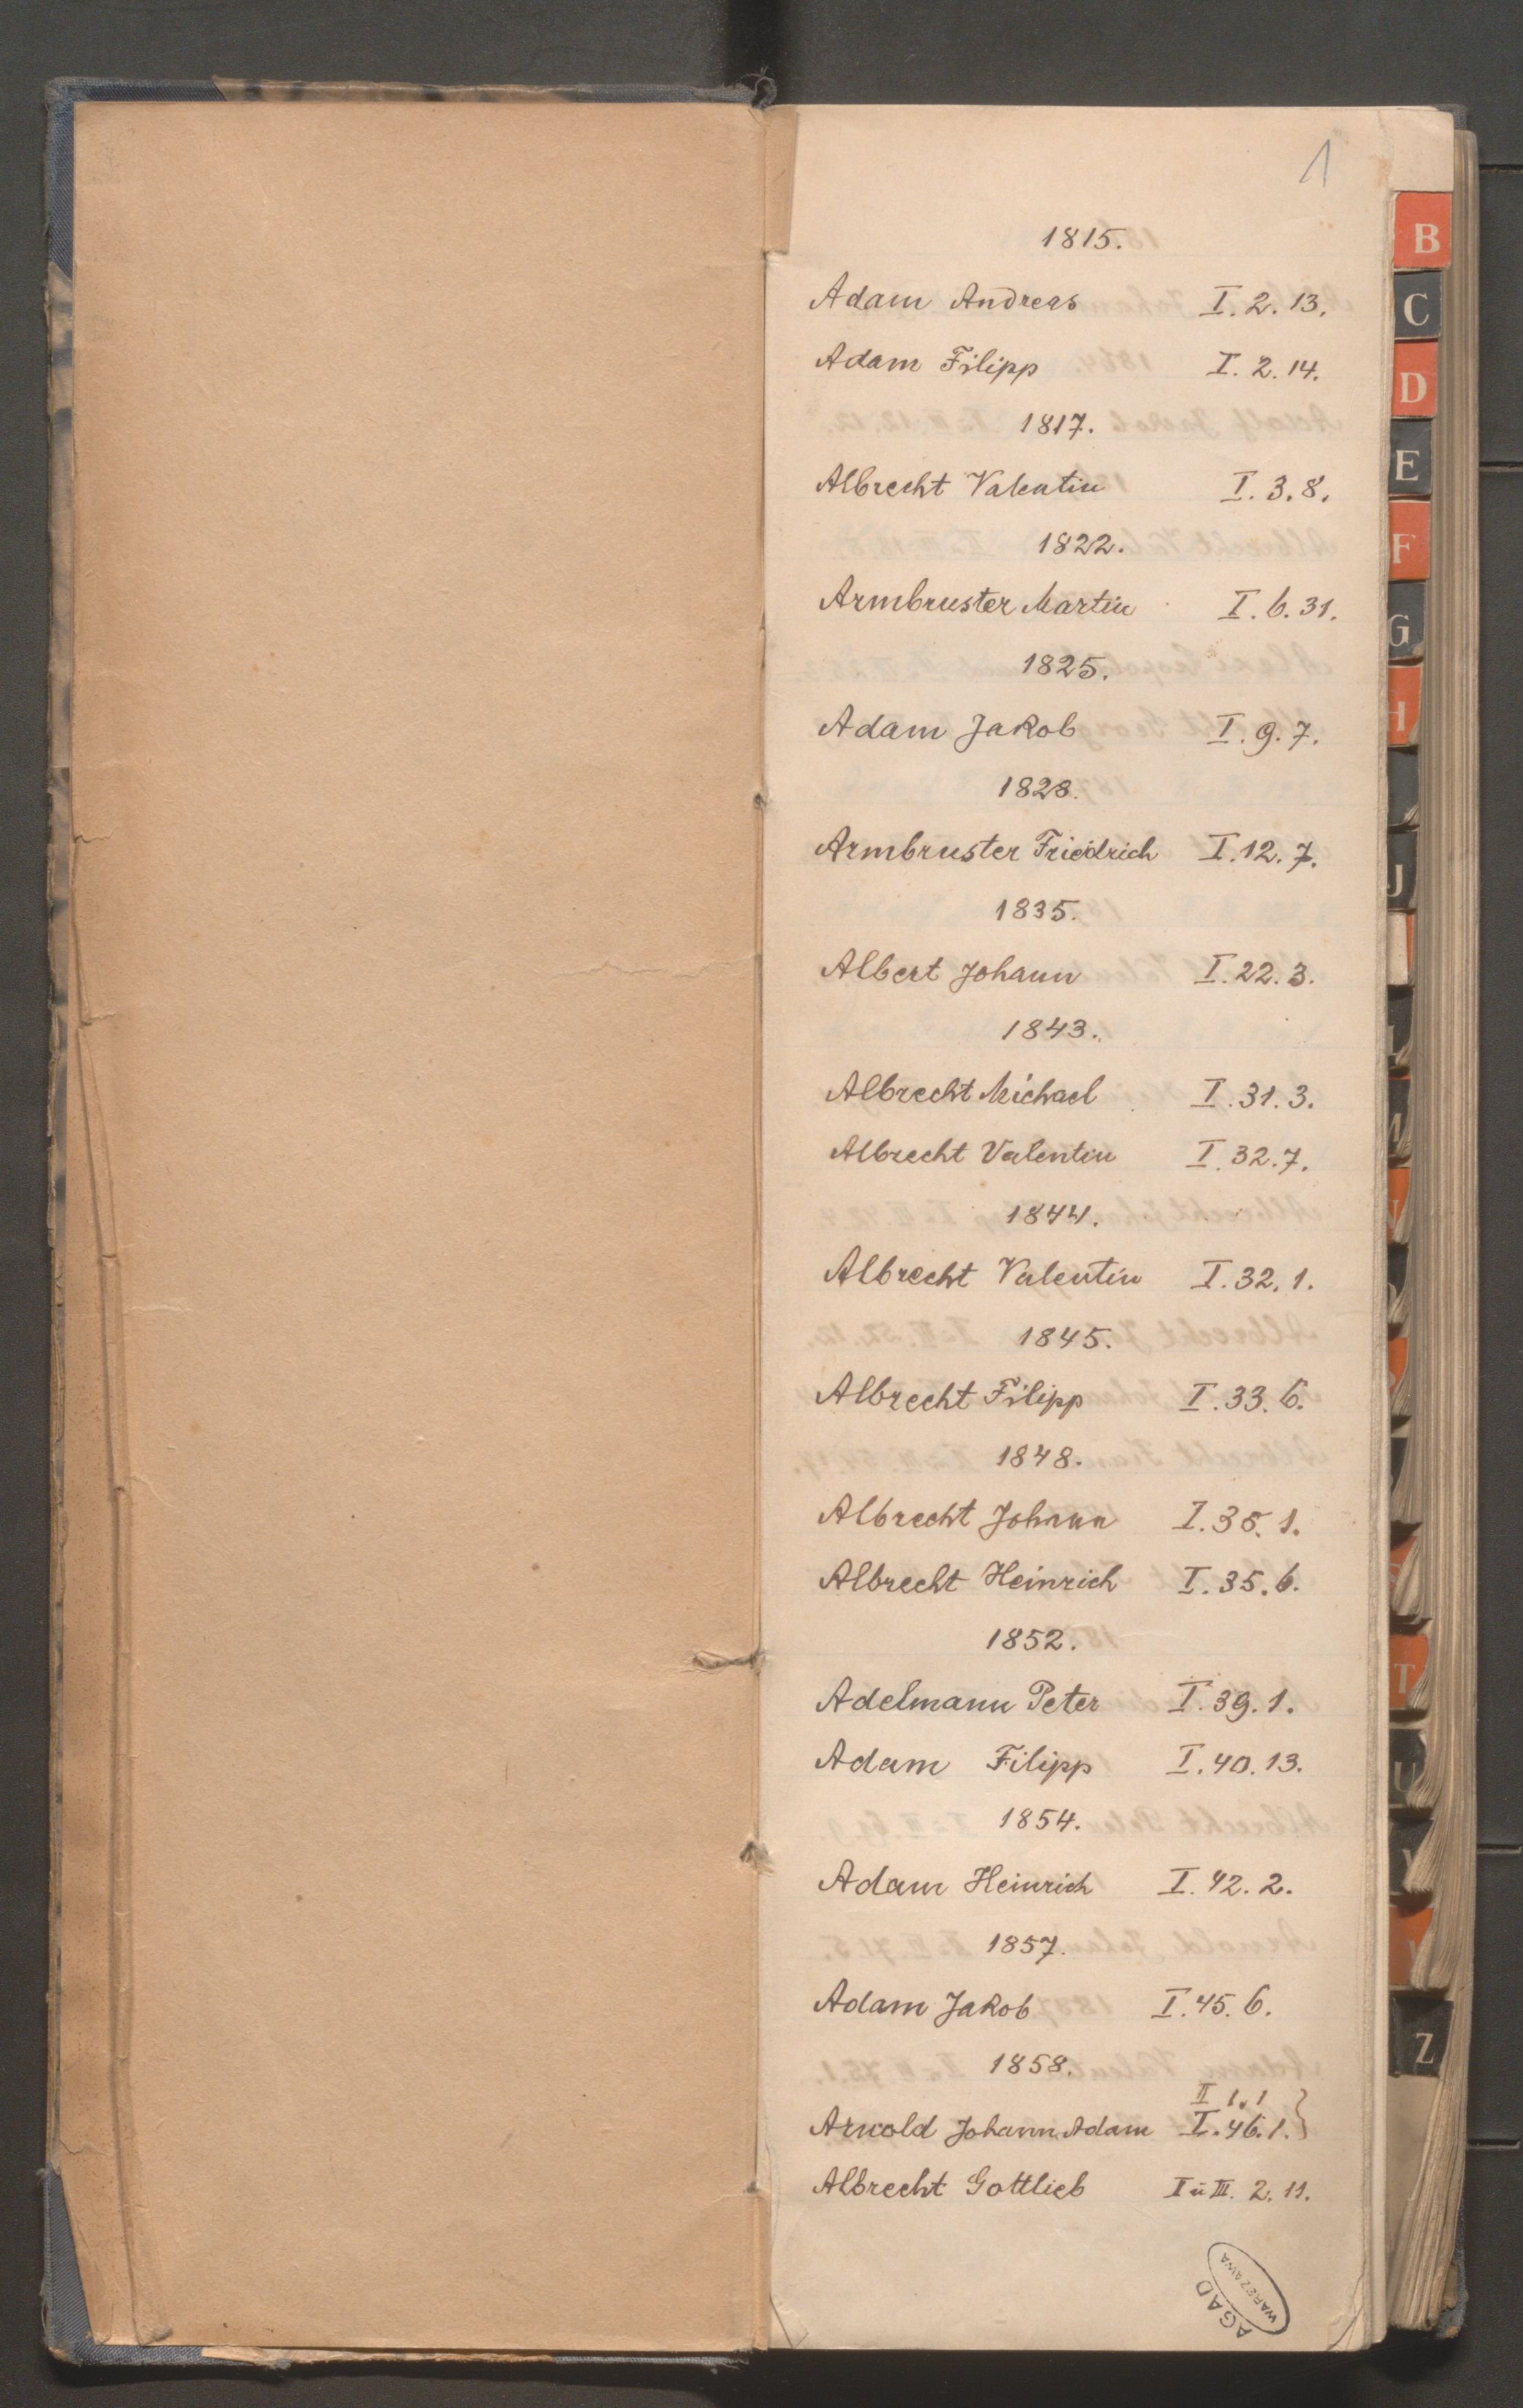 1
1815.
Adam Andreas I. 2. 13.
Adam Filipp I. 2. 14.
1817.
Albrecht Valentin I. 3. 8.
1822.
Armbruster Martin I. 6. 31.
1825.
Adam Jakob I. 9. 7.
1828.
Armbruster Friedrich I. 12. 7.
1835.
Albert Johann I. 22. 3.
1843.
Albrecht Michael I. 31. 3.
Albrecht Valentin I. 32. 7.
1844.
Albrecht Valentin I. 32. 1.
1845.
Albrecht Filipp I. 33. 6.
1848.
Albrecht Johann I. 35. 1.
Albrecht Heinrich I. 35. 6.
1852.
Adelmann Peter I. 39. 1.
Adam Filipp I. 40. 13.
1854.
Adam Heinrich I. 42. 2.
1857.
Adam Jakob I. 45. 6.
1858.
II 1. 1
Arnold Johann Adam I. 46. 1. }
Albrecht Gottlieb I u III. 2. 11.
AGAD
WARSZAWA
B
C
D
E
F
G
H
J
T
U
Z